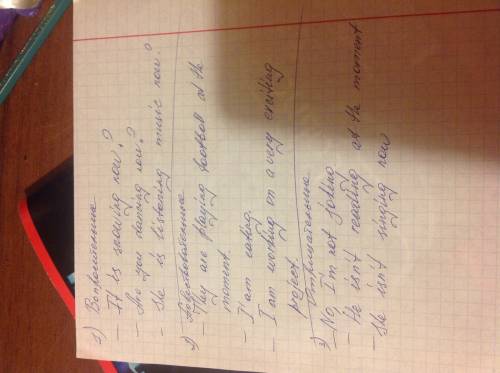 1) Вопросительные
– It is snowing now?
– Are you dancing now?
– She is listening music now?
2) Повествовательные
– They are playing football at the
moment.
– I am eating.
– I am working on a very exciting
project.
3) Отрицательные
– No, I'm not joking
– He isn't reading at the moment
– She isn't singing now